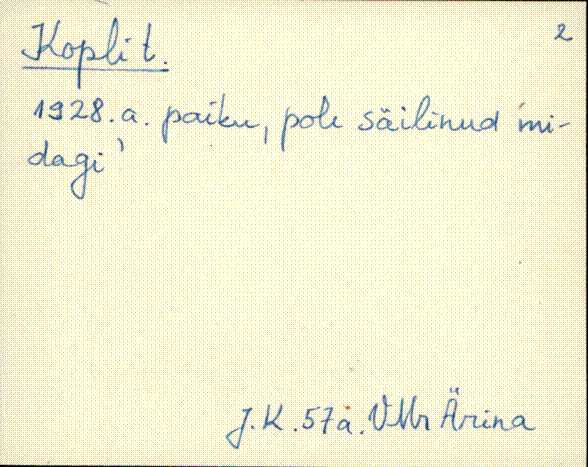 2
Kopli t.
1928. a. paiku, pole säilinud mi-
dagi
J.K. 57 a. VMr Ärina